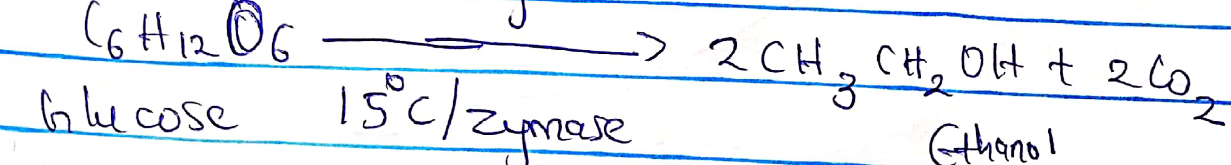 C6H12O6 ———> 2CH3CH2OH + 2CO2
Glucose 15°C/zymase Ethanol